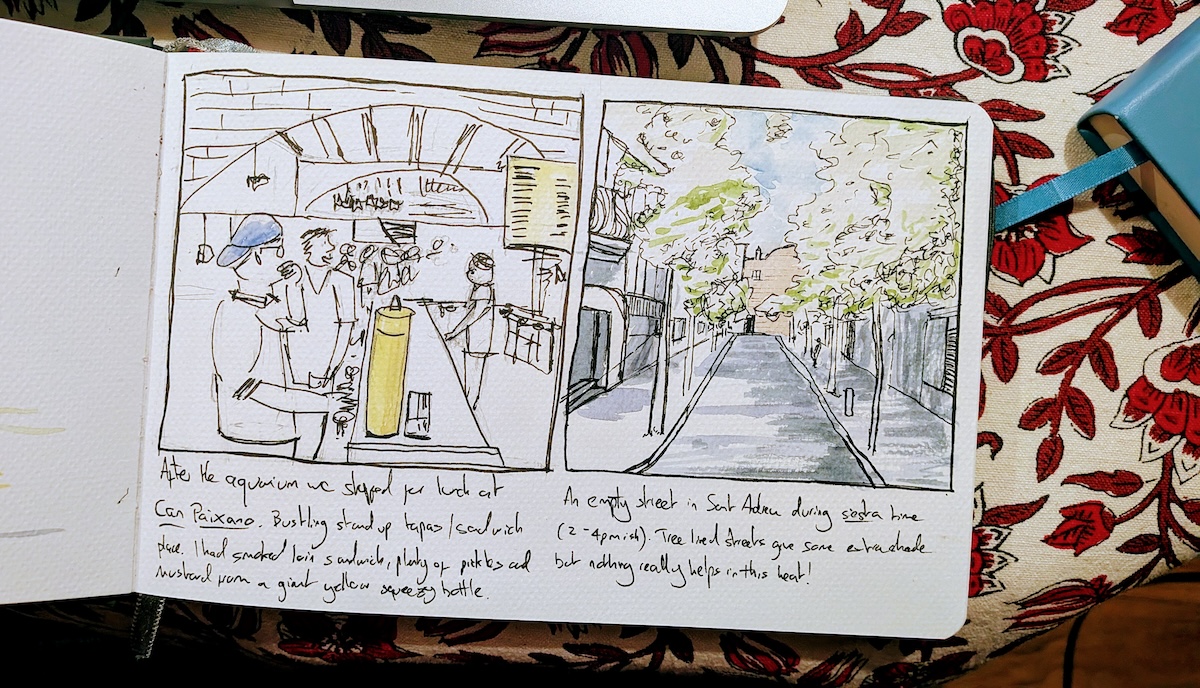 After the aquarium we stopped for lunch at
Can Paixano. Bustling stand up tapas/sandwich
place. I had smoked loin sandwich, plenty of pickles and
mustard from a giant yellow squeezy bottle.
An empty street in Sant Adreu during siesta time
(2-4pmish). Tree lined streets give some extra shade
but nothing really helps in this heat!